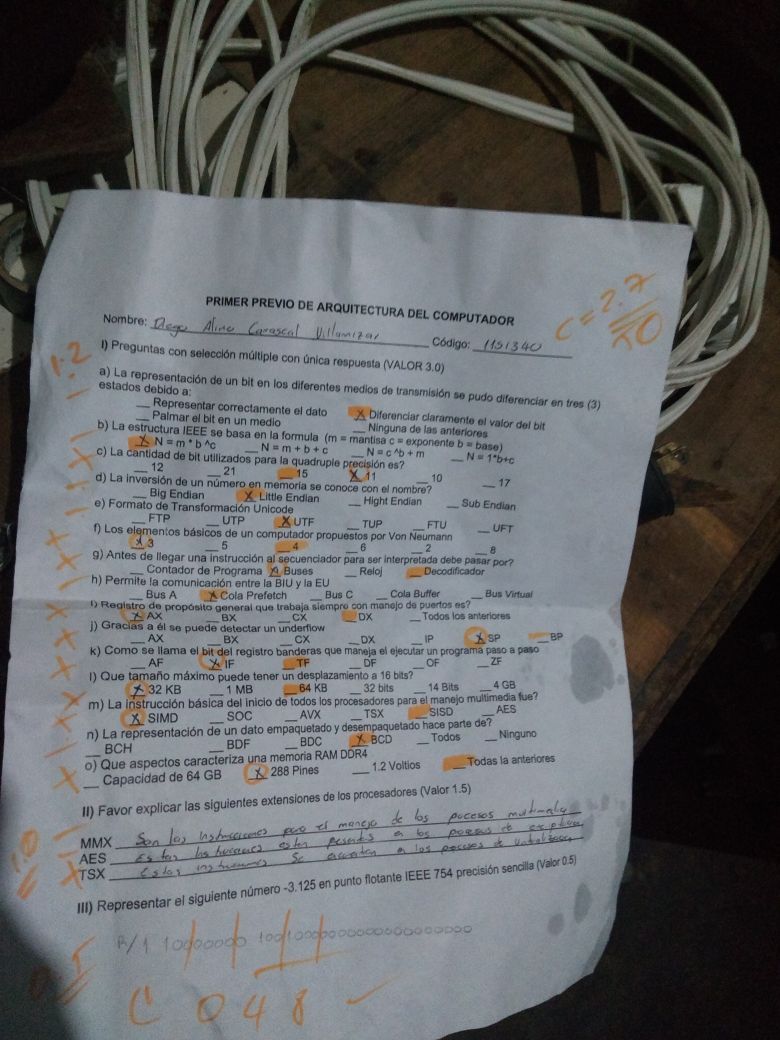 PRIMER PREVIO DE ARQUITECTURA DEL COMPUTADOR
C = 2.7
Nombre: Diego Villamizar Código: 1151340
I) Preguntas con selección múltiple con única respuesta (VALOR 3.0)
1.2
a) La representación de un bit en los diferentes medios de transmisión se pudo diferenciar en tres (3)
estados debido a:
__ Representar correctamente el dato X Diferenciar claramente el valor del bit
__ Palmar el bit en un medio __ Ninguna de las anteriores
b) La estructura IEEE se basa en la formula (m = mantisa c = exponente b = base)
X N = m * b ^c __ N = m + b + c __ N = c ^b + m __ N = 1*b+c
c) La cantidad de bit utilizados para la quadruple precisión es?
__ 12 __ 21 __ 15 X 11 __ 10 __ 17
d) La inversión de un número en memoria se conoce con el nombre?
__ Big Endian X Little Endian __ Hight Endian __ Sub Endian
e) Formato de Transformación Unicode
__ FTP __ UTP X UTF __ TUP __ FTU __ UFT
f) Los elementos básicos de un computador propuestos por Von Neumann
X 3 __ 5 __ 4 __ 6 __ 2 __ 8
g) Antes de llegar una instrucción al secuenciador para ser interpretada debe pasar por?
__ Contador de Programa X Buses __ Reloj __ Decodificador
h) Permite la comunicación entre la BIU y la EU
__ Bus A X Cola Prefetch __ Bus C __ Cola Buffer __ Bus Virtual
i) Registro de propósito general que trabaja siempre con manejo de puertos es?
X AX __ BX __ CX __ DX __ Todos los anteriores
j) Gracias a él se puede detectar un underflow
__ AX __ BX __ CX __ DX __ IP X SP __ BP
k) Como se llama el bit del registro banderas que maneja el ejecutar un programa paso a paso
__ AF X IF __ TF __ DF __ OF __ ZF
l) Que tamaño máximo puede tener un desplazamiento a 16 bits?
X 32 KB __ 1 MB __ 64 KB __ 32 bits __ 14 Bits __ 4 GB
m) La instrucción básica del inicio de todos los procesadores para el manejo multimedia fue?
X SIMD __ SOC __ AVX __ TSX __ SISD __ AES
n) La representación de un dato empaquetado y desempaquetado hace parte de?
__ BCH __ BDF __ BDC X BCD __ Todos __ Ninguno
o) Que aspectos caracteriza una memoria RAM DDR4
__ Capacidad de 64 GB X 288 Pines __ 1.2 Voltios __ Todas la anteriores
II) Favor explicar las siguientes extensiones de los procesadores (Valor 1.5)
1.0
MMX Son las Instrucciones para el manejo de los procesos multimedia
AES Estas Instrucciones estan a los procesos de
TSX Estas instrucciones Se a los procesos de
III) Representar el siguiente número -3.125 en punto flotante IEEE 754 precisión sencilla (Valor 0.5)
0.5
R/ 1 10000000 10010000000000000000000
C 0 4 8